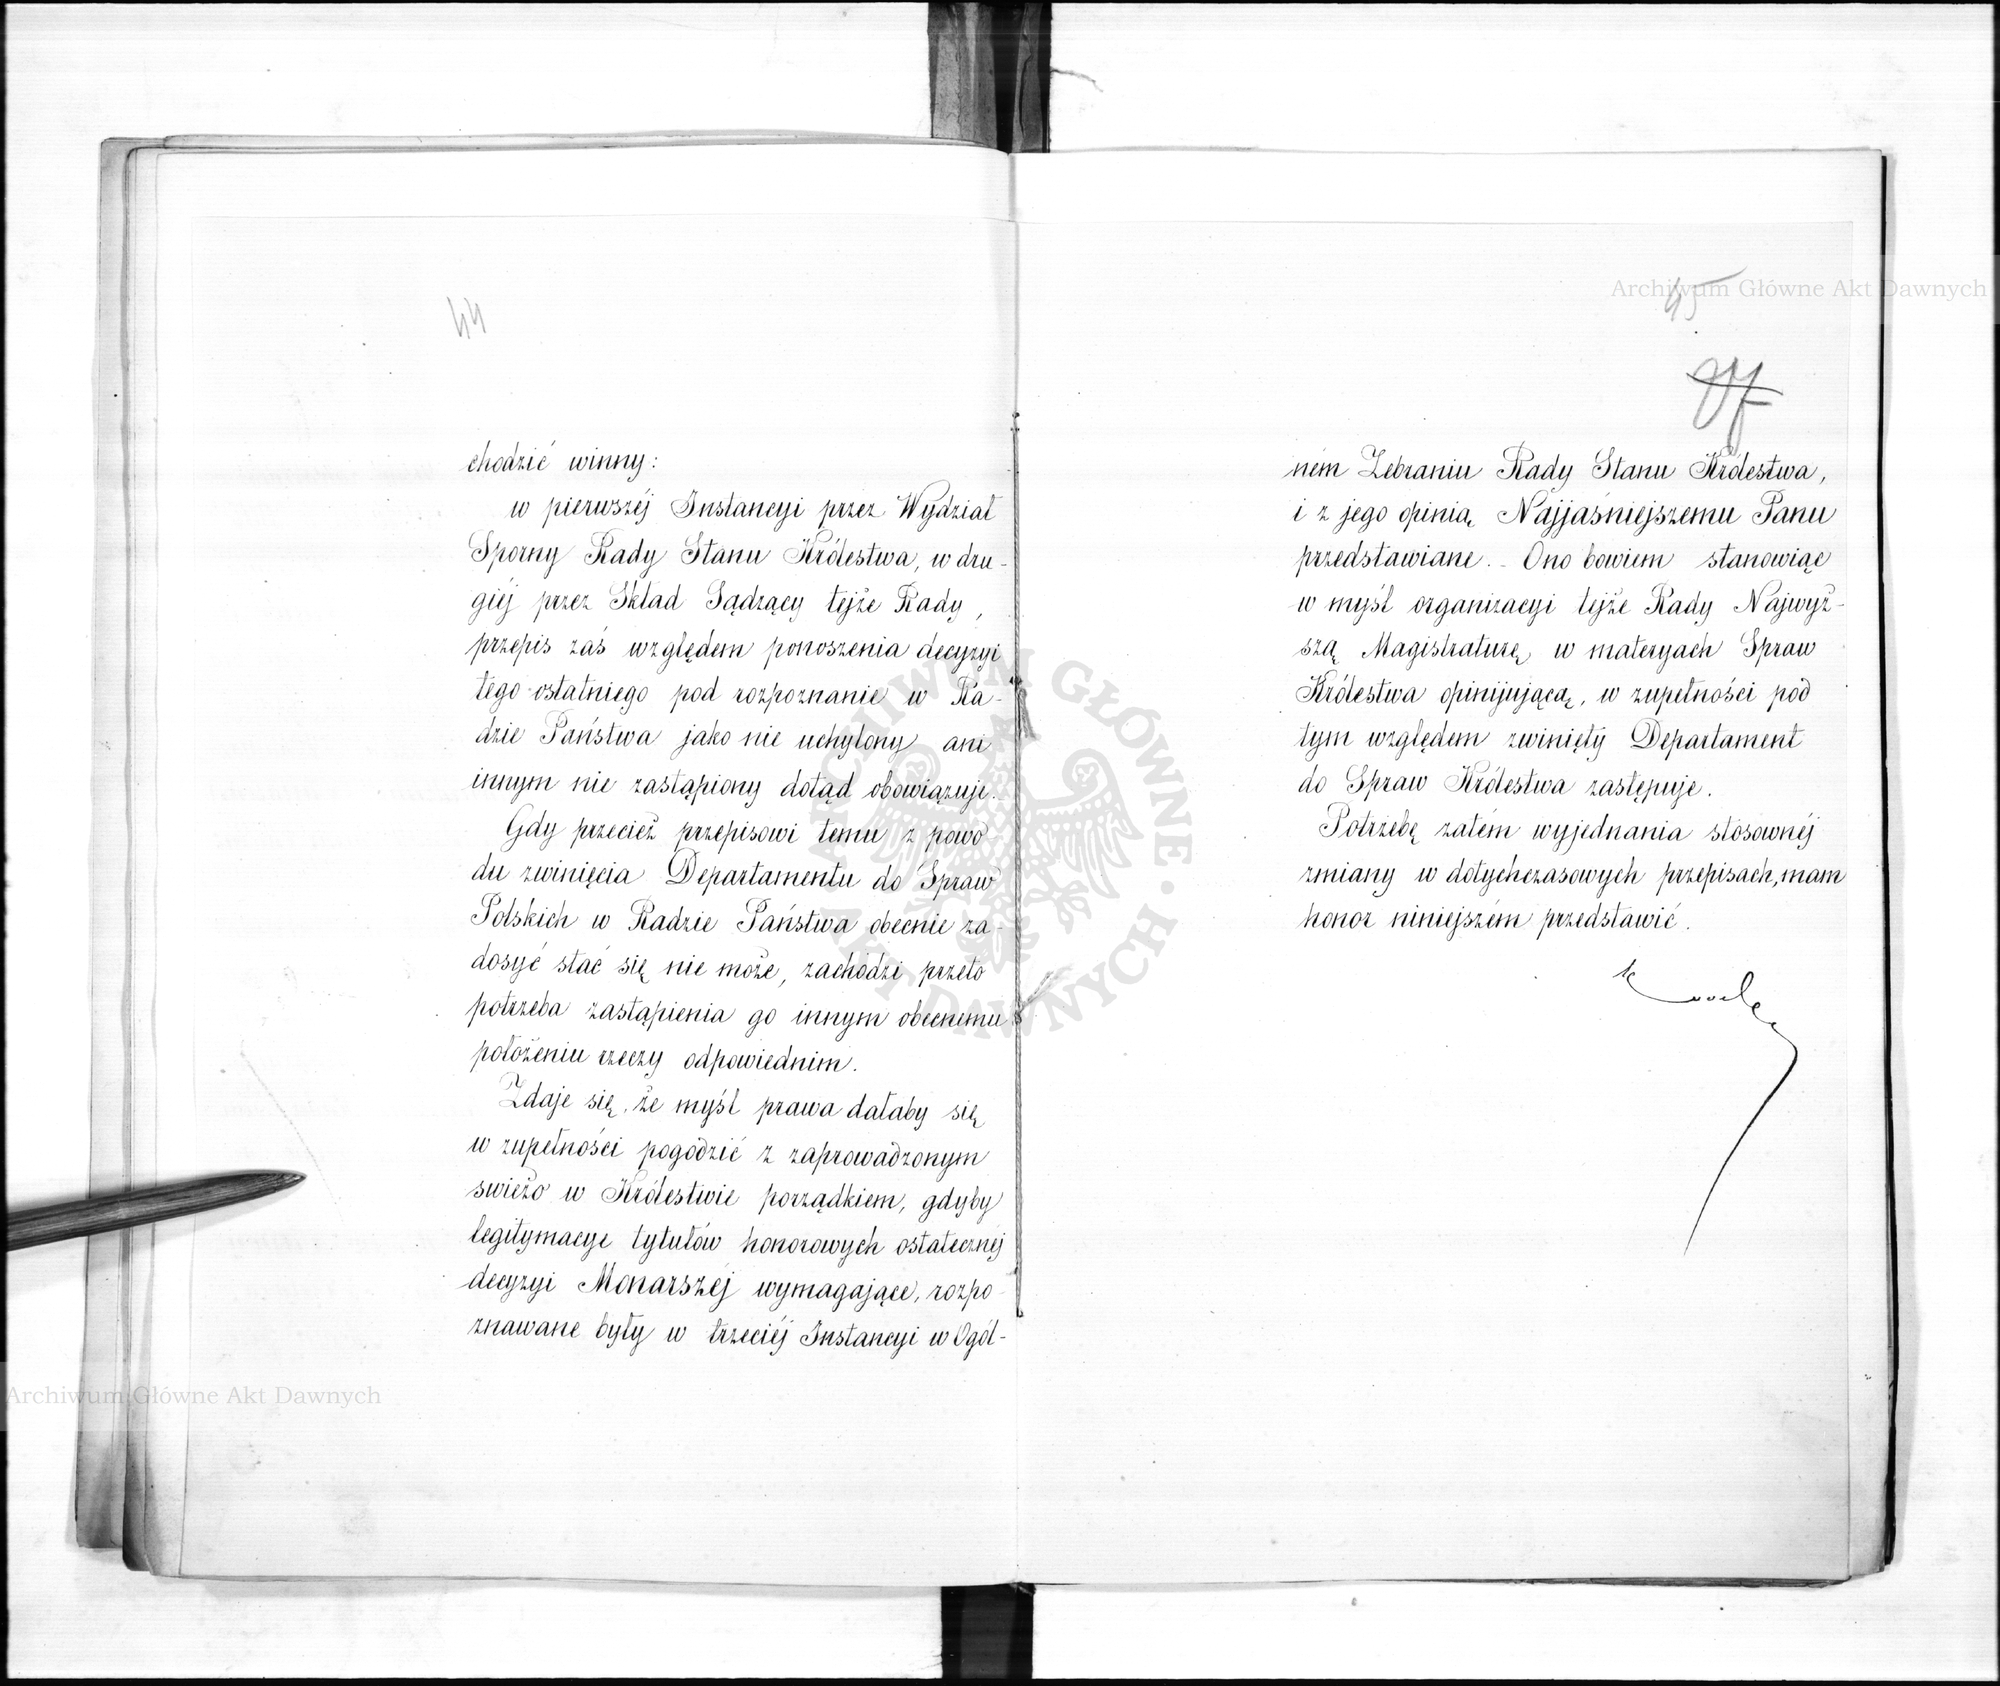 44
chodzić winny:
w pierwszéj Instancyi przez Wydział
Sporny Rady Stanu Królestwa, w dru-
giéj przez Skład Sądzący tejże Rady,
przepis zaś względem ponoszenia decyzyi
tego ostatniego pod rozpoznanie w Ra-
dzie Państwa jako nie uchylony ani
innym nie zastąpiony dotąd obowiązuje.
Gdy przecież przepisowi temu z powo-
du zwinięcia Departamentu do Spraw
Polskich w Radzie Państwa obecnie za-
dosyć stać się nie może, zachodzi przeto
potrzeba zastąpienia go innym obecnemu
położeniu rzeczy odpowiednim.
Zdaje się, że myśl prawa dałaby się
w zupełności pogodzić z zaprowadzonym
swieżo w Królestwie porządkiem, gdyby
legitymacye tytułów honorowych ostatecznéj
decyzyi Monarszéj wymagające, rozpo-
znawane były w trzeciéj Instancyi w Ogól-
45
ném Zebraniu Rady Stanu Królestwa,
i z jego opinią Najjaśniejszemu Panu
przedstawiane. - Ono bowiem stanowiąc
w myśl organizacyi tejże Rady Najwyż-
szą Magistraturę w materyach Spraw
Królestwa opinijującą, w zupełności pod
tym względem zwinięty Departament
do Spraw Królestwa zastępuje.
Potrzebę zatém wyjednania stosownéj
zmiany w dotychczasowych przepisach, mam
honor niniejszém przedstawić.
Archiwum Główne Akt Dawnych
Archiwum Główne Akt Dawnych
ARCHIWUM GŁÓWNE AKT DAWNYCH